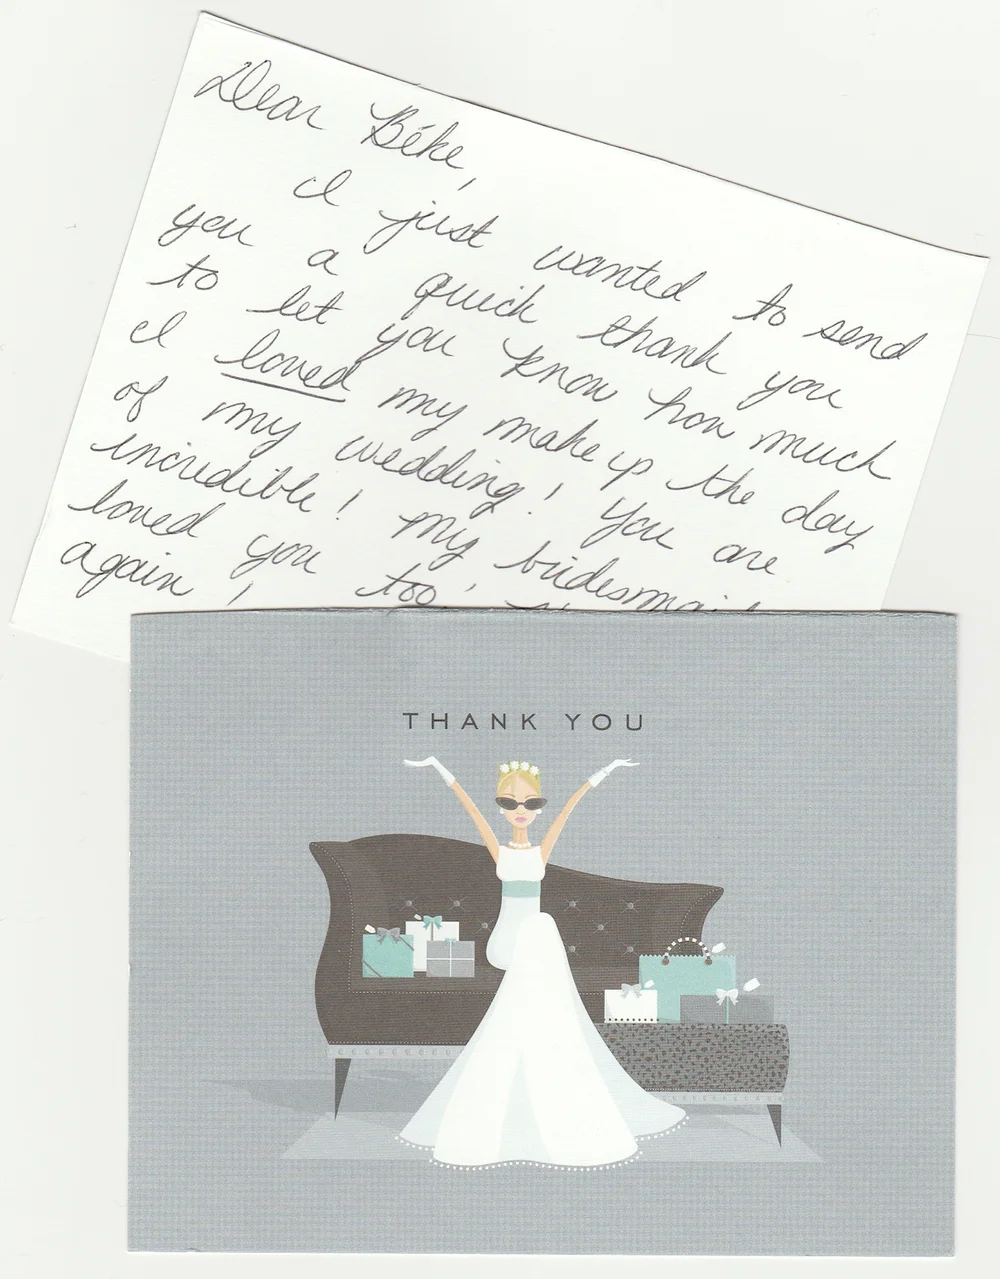 Dear Béke,
I just wanted to send
you a quick thank you
to let you know how much
I loved my make up the day
of my wedding! You are
incredible! My bridesmaids
loved you too!
again!
THANK YOU